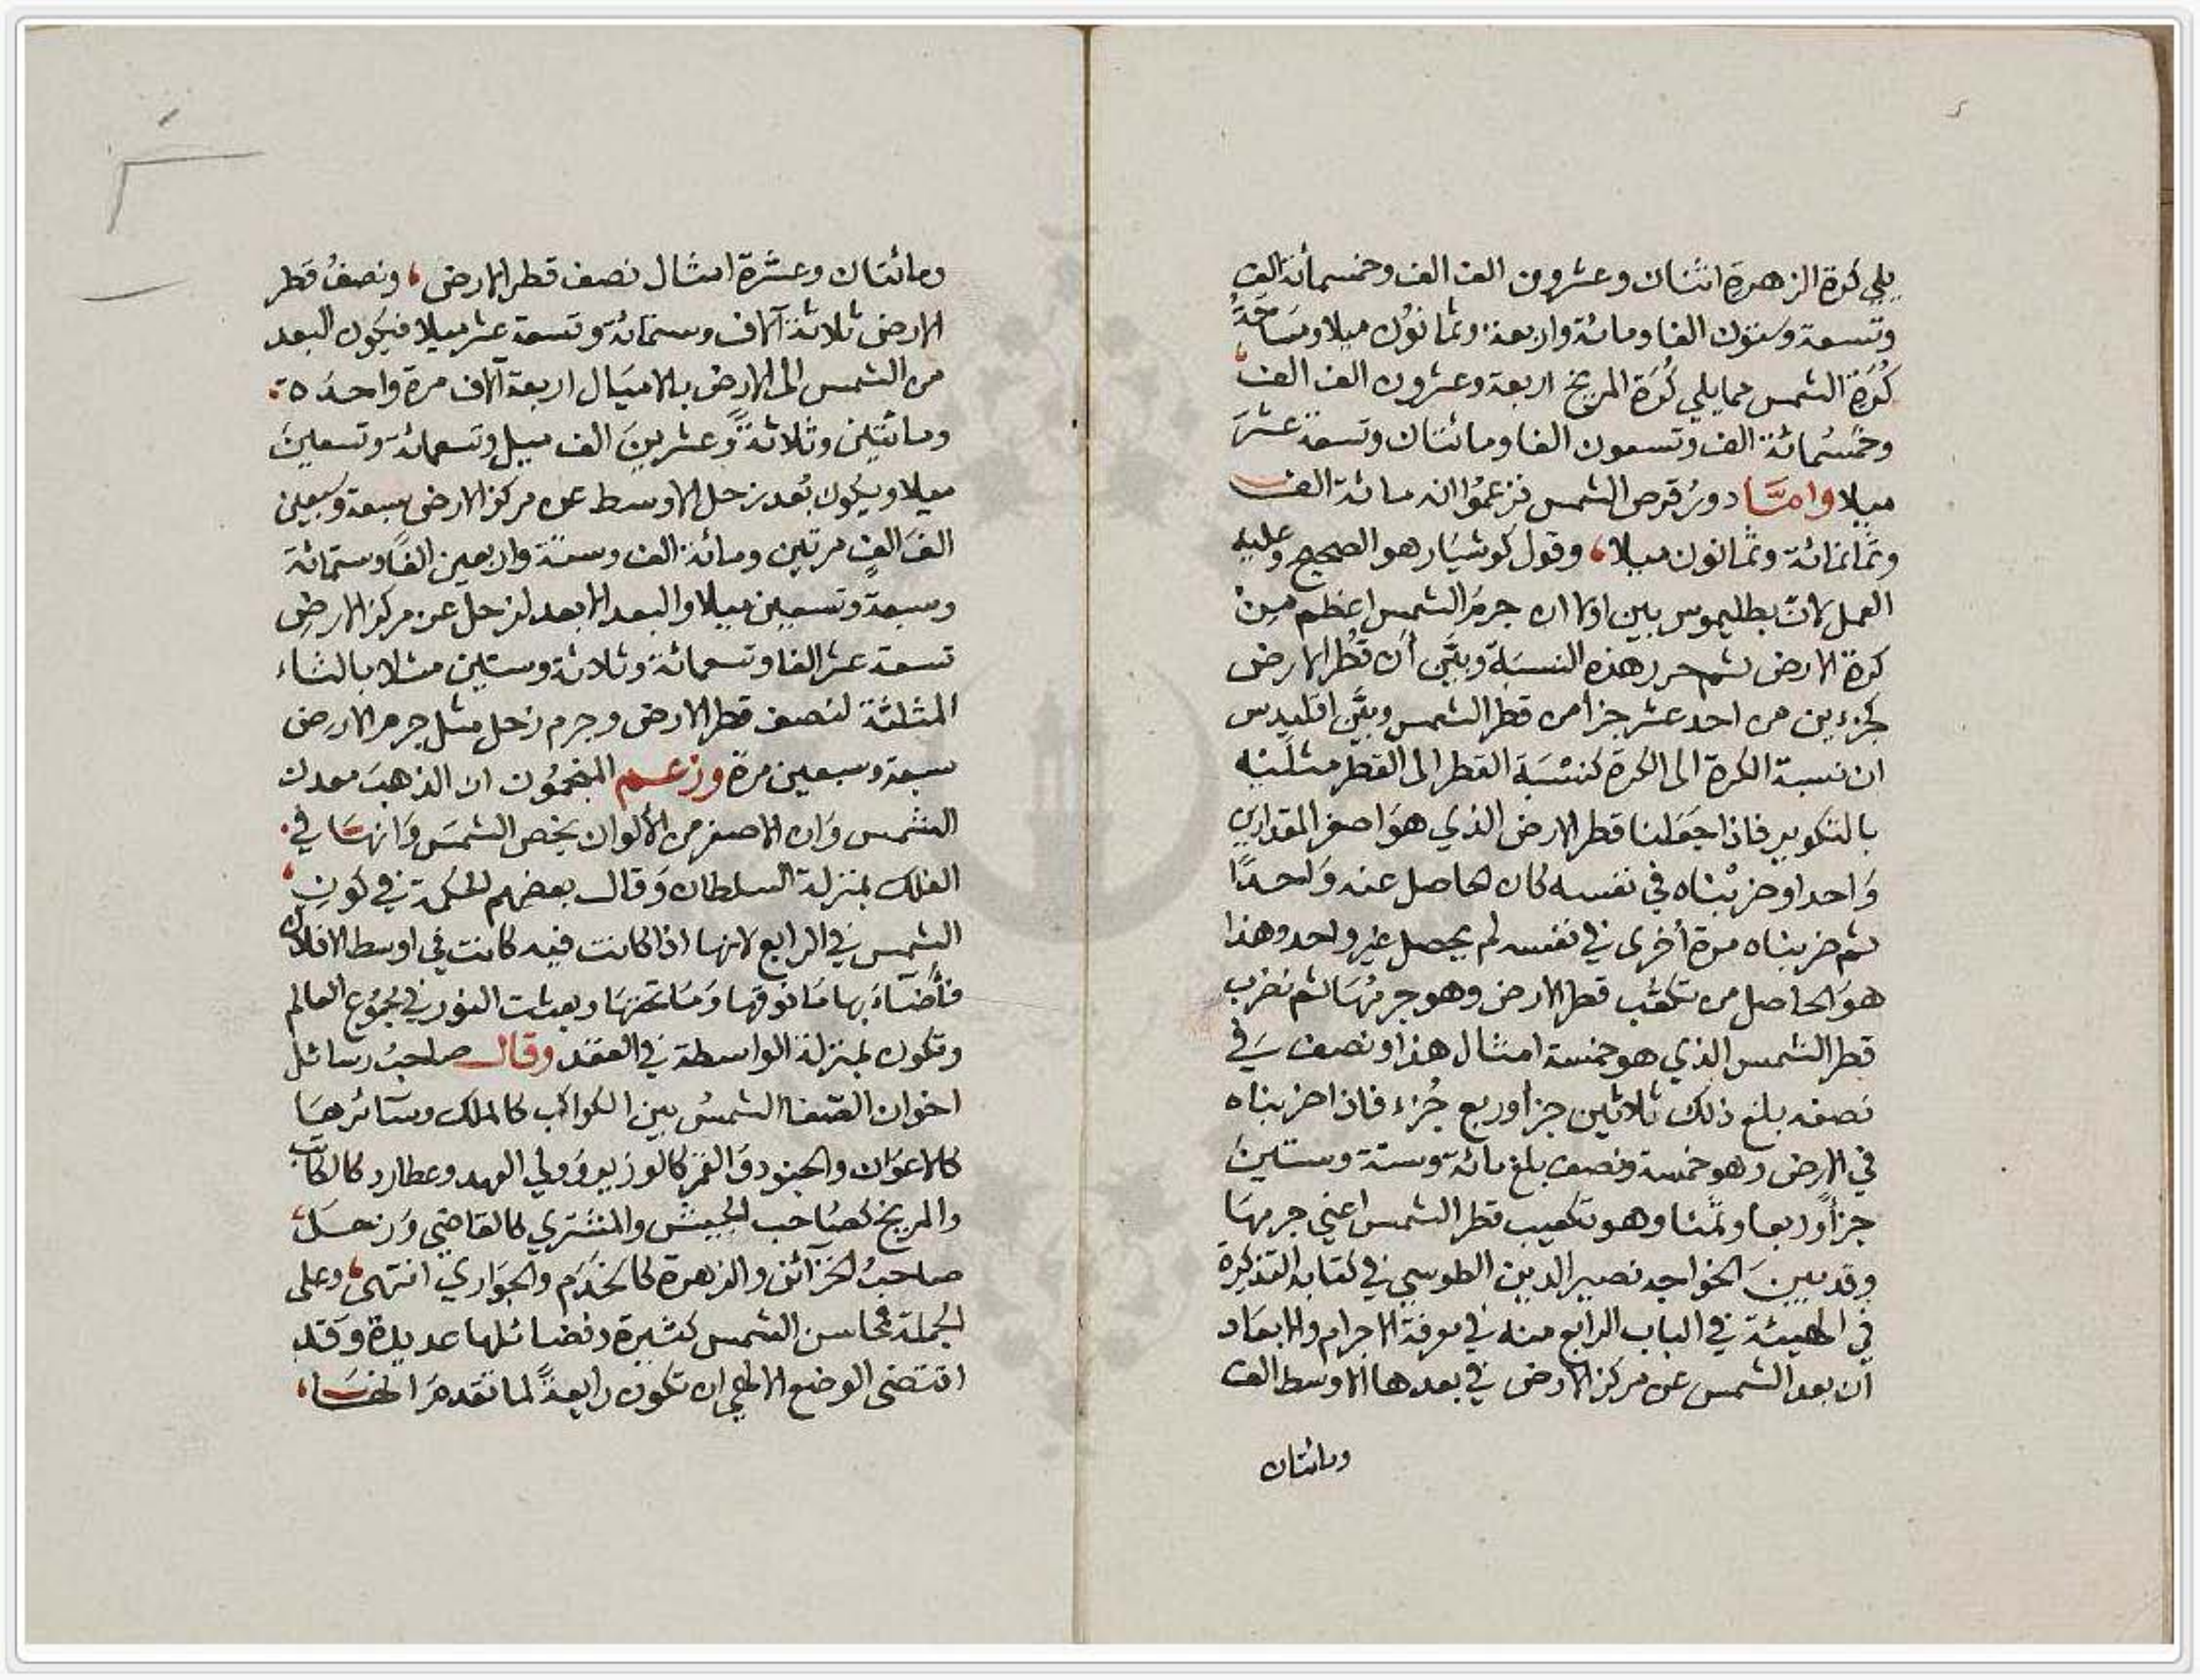 يلي كرة الزهرة اثنان وعشرون الف الف وخمسمائة الف
وتسعة وستون الفا ومائة واربعة وثمانون ميلا ومساحة
كرة الشمس مما يلي كرة المريخ اربعة وعشرون الف الف
وخمسمائة الف وتسعون الفا ومائتان وتسعة عشر
ميلا واما دور قرص الشمس فزعموا انه مائة الف
وثمانمائة وثمانون ميلا، وقول كوشيار هو الصحيح وعليه
العمل لان بطليموس بين اولا ان جرم الشمس اعظم من
كرة الارض ثم حرر هذه النسبة وبين أن قطر الارض
كجزءين من احد عشر جزأ من قطر الشمس وبين اقليدس
ان نسبة الكرة الى الكرة كنسبة القطر الى القطر مثلثه
بالتكوير فاذا جعلنا قطر الارض الذي هو اصغر المقدارين
واحدا وضربناه في نفسه كان الحاصل عنه واحدًا
ثم ضربناه مرة أخرى في نفسه لم يحصل غير واحد وهذا
هو الحاصل من تكعّب قطر الارض وهو جرمها ثم نضرب
قطر الشمس الذي هو خمسة امثال هذا ونصف في
نصفه بلغ ذلك ثلاثين جزأ وربع جزء فاذا ضربناه
في الارض وهو خمسة ونصف بلغ مائة وستة وستين
جزأ وربعا وثمنا وهو تكعيب قطر الشمس اعني جرمها
وقد بين الخواجه نصير الدين الطوسي في كتابه التذكرة
في الهيئة في الباب الرابع منه في معرفة الاجرام والابعاد
أن بعد الشمس عن مركز الارض في بعدها الاوسط الف
ومائتان
ومائتان وعشرة امثال نصف قطر الارض، ونصف قطر
الارض ثلاثة آلاف وستمائة وتسعة عشر ميلا فيكون البعد
من الشمس الى الارض بالاميال اربعة آلاف مرة واحدة
ومائتين وثلاثة وعشرين الف ميل وتسعمائة وتسعين
ميلا ويكون بعد زحل الاوسط عن مركز الارض سبعة وسبعين
الف الف مرتين ومائة الف وستة واربعين الفًا وستمائة
وسبعةً وتسعين ميلا والبعد الابعد لزحل عن مركز الارض
تسعة عشر الفا وتسعمائة وثلاثة وستين مثلا بالثاء
المثلثة لنصف قطر الارض وجرم زحل مثل جرم الارض
سبعة وسبعين مرة وزعم المنجمون ان الذهب معدن
الشمس وان الاصفر من الألوان يخص الشمس وانها في
الفلك بمنزلة السلطان وقال بعضهم الحكمة في كون
الشمس في الرابع لانها اذا كانت فيه كانت في اوسط الافلاك
فأضاء بها ما فوقها وما تحتها وبعثت النور في مجموع العالم
وتكون بمنزلة الواسطة في العقد وقال صاحب رسائل
اخوان الصفا الشمس بين الكواكب كالملك وسائرها
كالاعوان والجنود والقمر كالوزير وولي العهد وعطارد كالكاتب
والمريخ كصاحب الجيش والمشتري كالقاضي وزحل
صاحب الخزائن والزهرة كالخدم والجواري انتهى، وعلى
الجملة فمحاسن الشمس كثيرة وفضائلها عديدة وقد
اقتضى الوضع الالهي ان تكون رابعةً لما تقدم انفسا